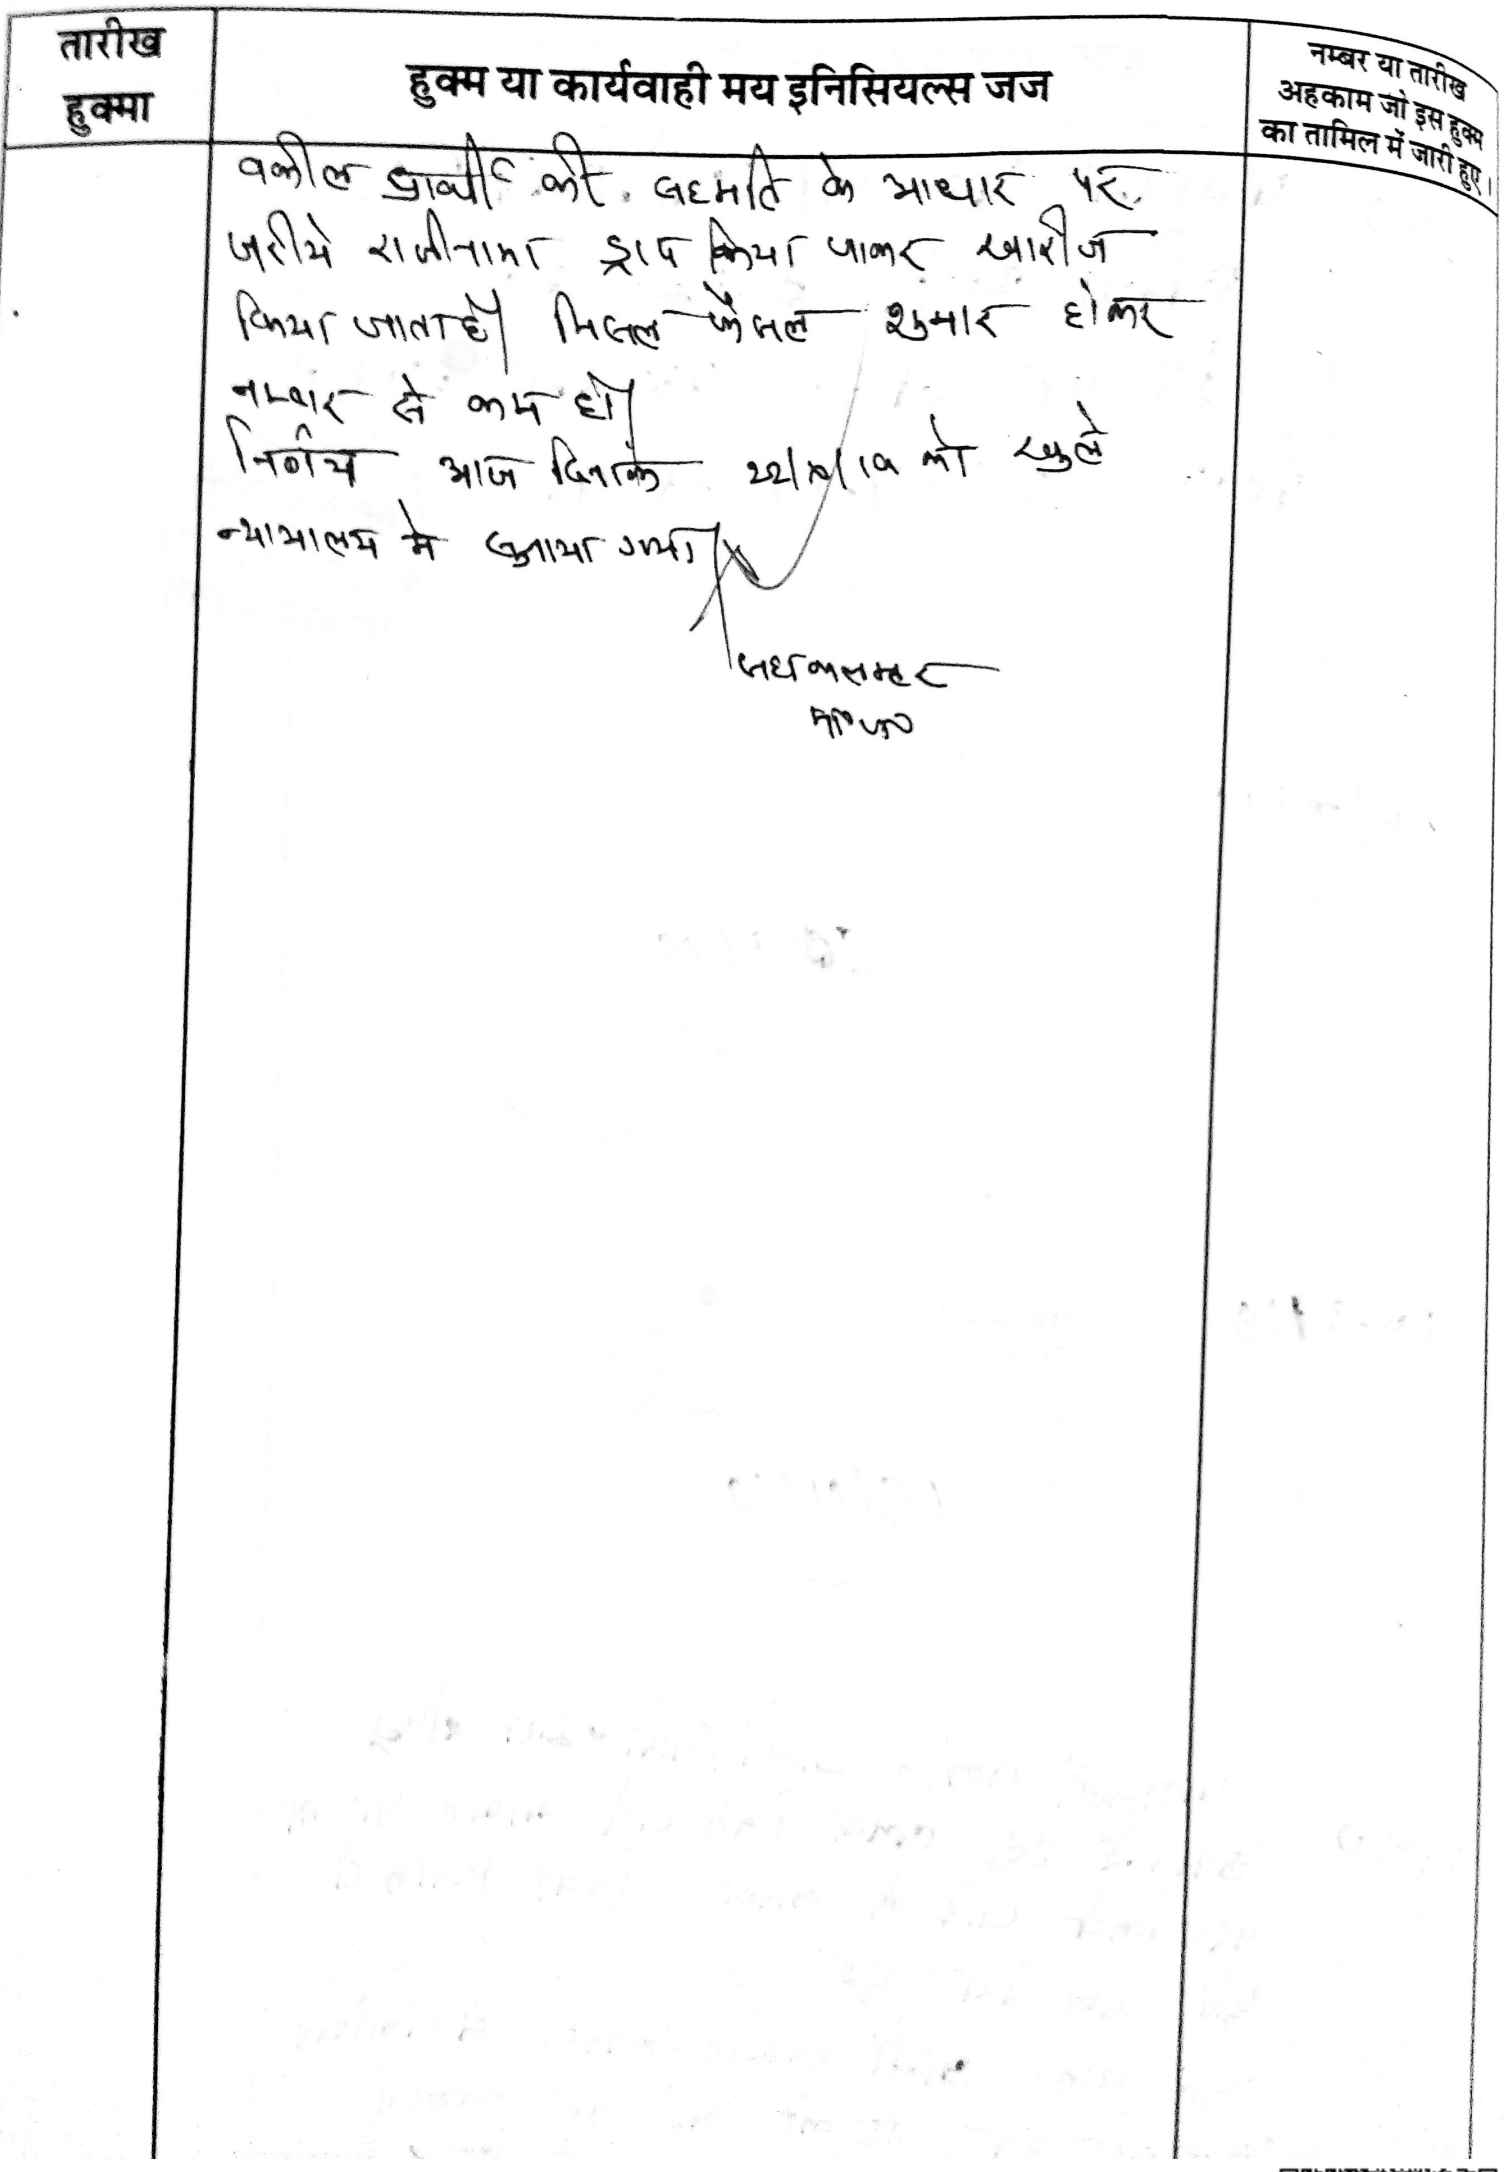 तारीख
हुक्मा
हुक्म या कार्यवाही मय इनिसियल्स जज
नम्बर या तारीख
अहकाम जो इस हुक्म
का तामिल में जारी हुए।
वकील प्रार्थी की सहमति के आधार पर
जरीये राजीनामा ड्राप किया जाकर खारीज
किया जाता है। मिसल फैसल शुमार होकर
नम्बर से कम हो।
निर्णय आज दिनांक को खुले
न्यायालय मे सुनाया गया।